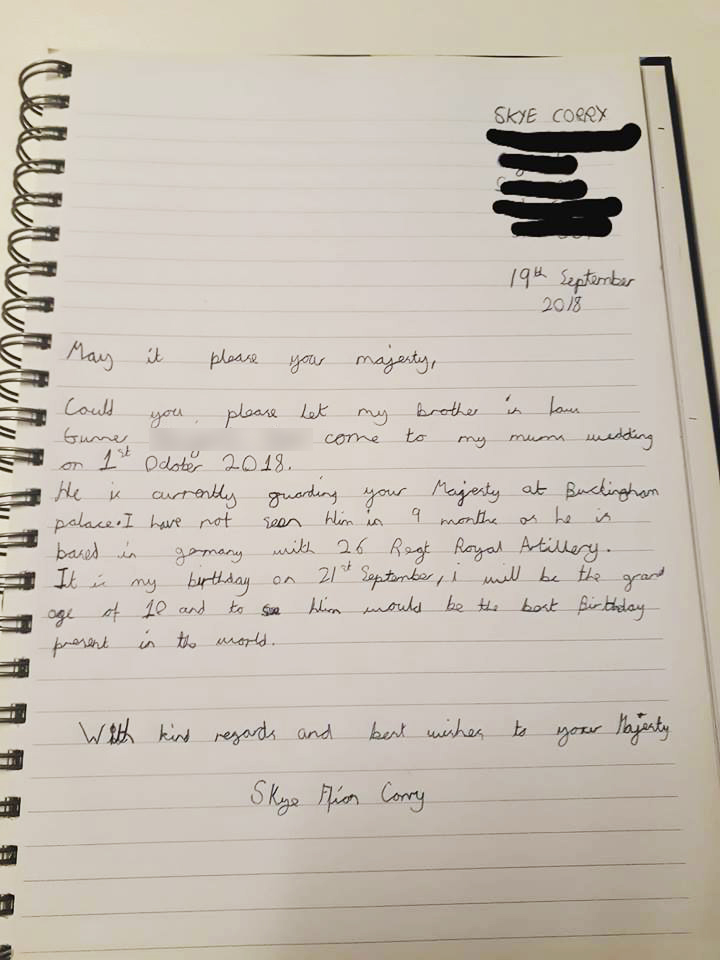 SKYE CORRY
19th September
2018
May it please your majesty,
Could you please let my brother in law
Gunner come to my mums wedding
on 1st October 2018.
He is currently guarding your Majesty at Buckingham
palace. I have not seen him in 9 months as he is
based in germany with 26 Regt Royal Artillery.
It is my birthday on 21st September, i will be the grand
age of 10 and to see him would be the best Birthday
present in the world.
With kind regards and best wishes to your Majesty
Skye Corry